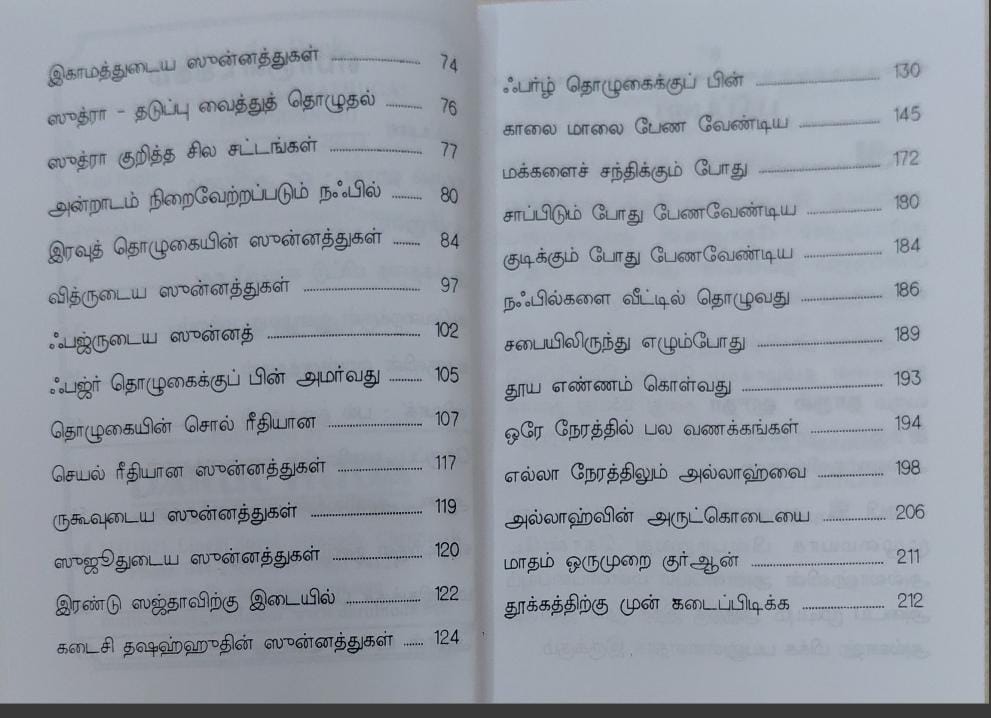 இகாமத்துடைய ஸுன்னத்துகள் ........................ 74
ஸுத்ரா - தடுப்பு வைத்துத் தொழுதல் ......... 76
ஸுத்ரா குறித்த சில சட்டங்கள் ....................... 77
அன்றாடம் நிறைவேற்றப்படும் நஃபில் ........ 80
இரவுத் தொழுகையின் ஸுன்னத்துகள் ....... 84
வித்ருடைய ஸுன்னத்துகள் ............................. 97
ஃபஜ்ருடைய ஸுன்னத் ..................................... 102
ஃபஜ்ர் தொழுகைக்குப் பின் அமர்வது ......... 105
தொழுகையின் சொல் ரீதியான ........................ 107
செயல் ரீதியான ஸுன்னத்துகள் ..................... 117
ருகூவுடைய ஸுன்னத்துகள் ........................... 119
ஸுஜூதுடைய ஸுன்னத்துகள் ...................... 120
இரண்டு ஸஜ்தாவிற்கு இடையில் ................... 122
கடைசி தஷஹ்ஹுதின் ஸுன்னத்துகள் ...... 124
ஃபர்ழ் தொழுகைக்குப் பின் ............................. 130
காலை மாலை பேண வேண்டிய ..................... 145
மக்களைச் சந்திக்கும் போது ............................. 172
சாப்பிடும் போது பேணவேண்டிய .................. 180
குடிக்கும் போது பேணவேண்டிய ................... 184
நஃபில்களை வீட்டில் தொழுவது .................... 186
சபையிலிருந்து எழும்போது ............................. 189
தூய எண்ணம் கொள்வது ................................ 193
ஒரே நேரத்தில் பல வணக்கங்கள் .................. 194
எல்லா நேரத்திலும் அல்லாஹ்வை ................ 198
அல்லாஹ்வின் அருட்கொடையை ..................... 206
மாதம் ஒருமுறை குர்ஆன் ................................ 211
தூக்கத்திற்கு முன் கடைப்பிடிக்க .................... 212